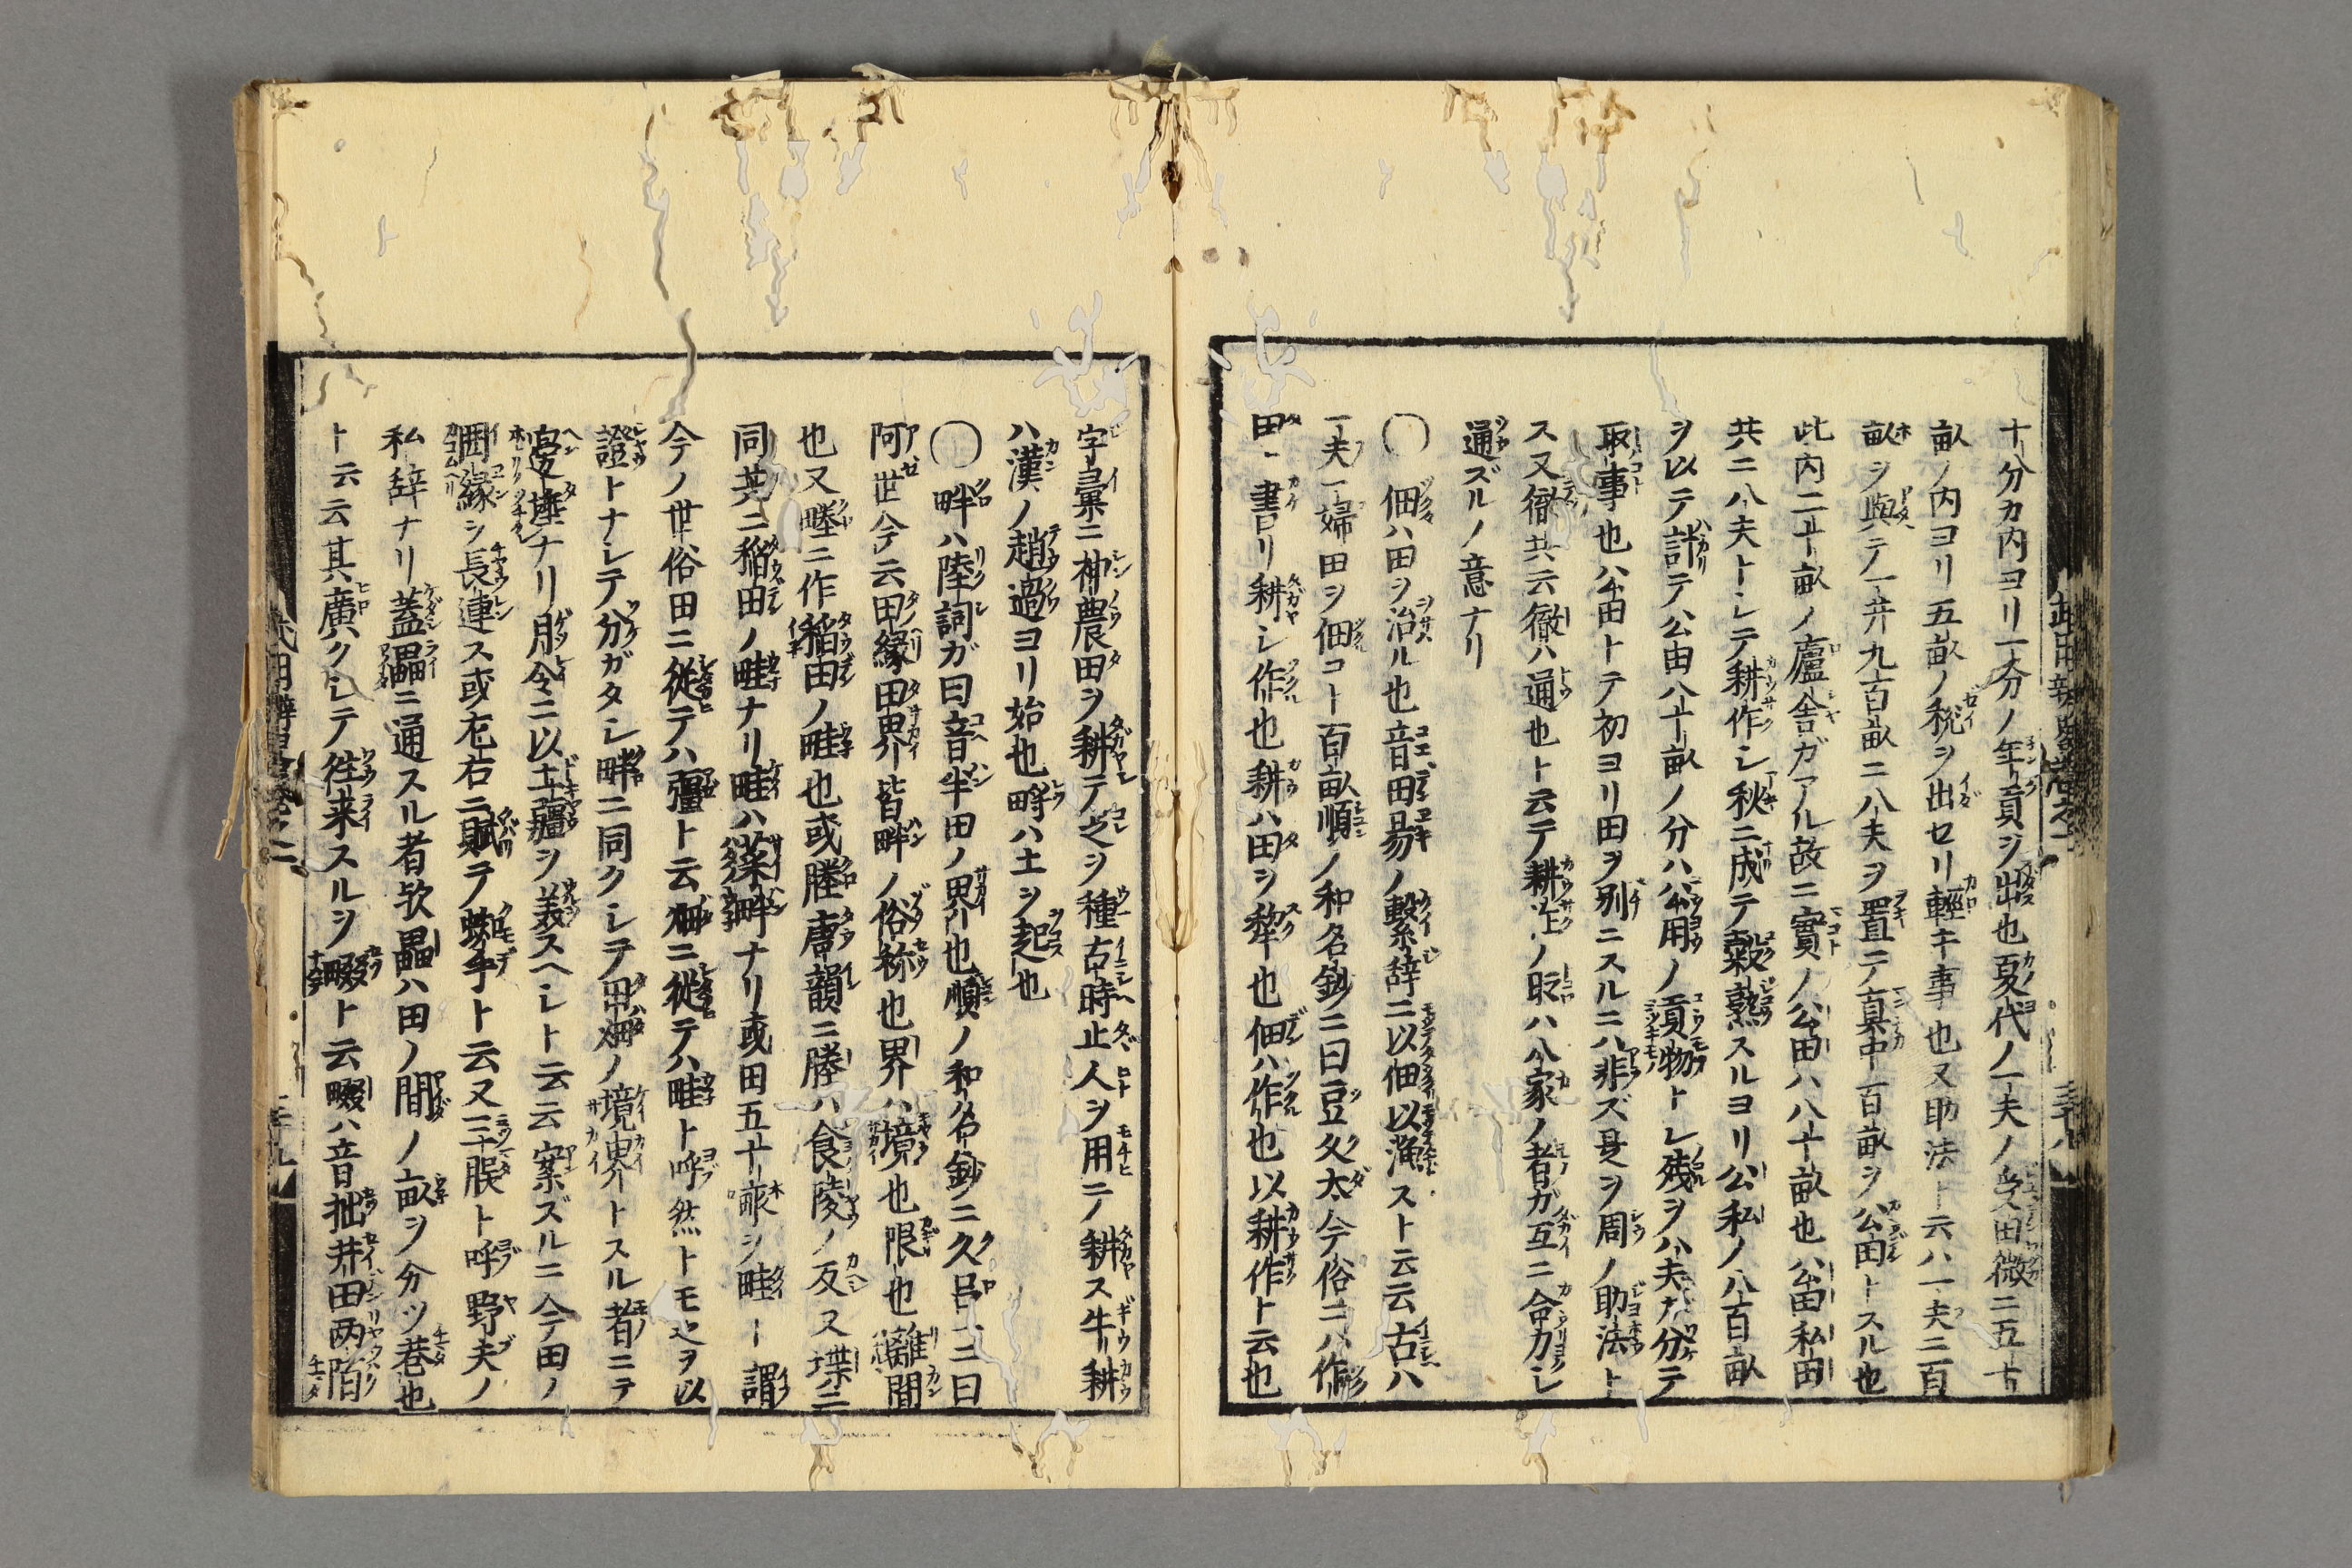 十分カ内ヨリ一夯ノ年貢ヲ出也夏代ノ一夫ノ受田徴ニ五十
畝ノ内ヨリ五畝ノ税ヲ出セリ輕キ事也又助法ト云ハ一夫ニ百
畝ヲ與テノ一井九百畝ニ八夫ヲ置ニノ真中百畝ヲ公田トスル也
此内二十畝ノ廬舎ガアル故ニ實ノ公田ハ八十畝也ハ公田私田
共ニ八夫トシテ耕作シ秋ニ成テ穀熟スルヨリ公私ノ八百畝
ヲ以テ計テ公由八十畝ノ分ハ公用ノ貢物トレ残ヲハ夫ガ分テ
取事也ハ公田トテ初ヨリ田ヲ別ニスルニハ非ズ是ヲ周ノ助法ト
ス又徹共云徹ハ通也ト云テ耕作ノ時ハ八家ノ者ガ互ニ合力シ
通ズルノ意ナリ
◯佃ハ田ヲ治ル也音田易ノ繫辞ニ以佃以漁スト云云古ハ
一夫一婦田ヲ佃コト百畝順ノ和名鈔ニ曰豆久太今俗ニハ作
田ト書リ耕シ作也耕ハ田ヲ犂也佃ハ作也以耕作ト云也
字彙ニ神農田ヲ耕テ之ヲ種古時止人ヲ用ニノ耕ス牛耕
ハ漢ノ趙過ヨリ始也畤ハ土ヲ起也
◯畔ハ陸詞ガ曰音半田ノ界也順ノ和名鈔ニ久呂ニ曰
阿世今云田縁田界皆畔ノ俗称也界ハ境也限也離間
也又塍ニ作稲田ノ畦也或塍唐韻ニ塍ハ食陵ノ反又堘ニ
同共ニ稲田ノ畦ナリ畦ハ菜畔ナリ或田五十畝ヲ畦ト謂
今ノ世俗田ニ從テハ疆ト云畑ニ從テハ畦ト呼然トモ之ヲ以
證トナシテ分ガタシ畔ニ同クシテ田畑ノ境界トスル者ニテ
邊陲ナリ月令ニ以土疆ヲ美スヘシト云云案ズルニ今田ノ
囲縁ヲ長連ス或左右ニ賦テ蜘手ト云又三股ト呼野夫ノ
私辞ナリ蓋畾ニ通スル者欤畾ハ田ノ間ノ畝ヲ分ツ巷也
ト云云其廣クシテ徃来スルヲ畷ト云畷ハ音拙井田两陌